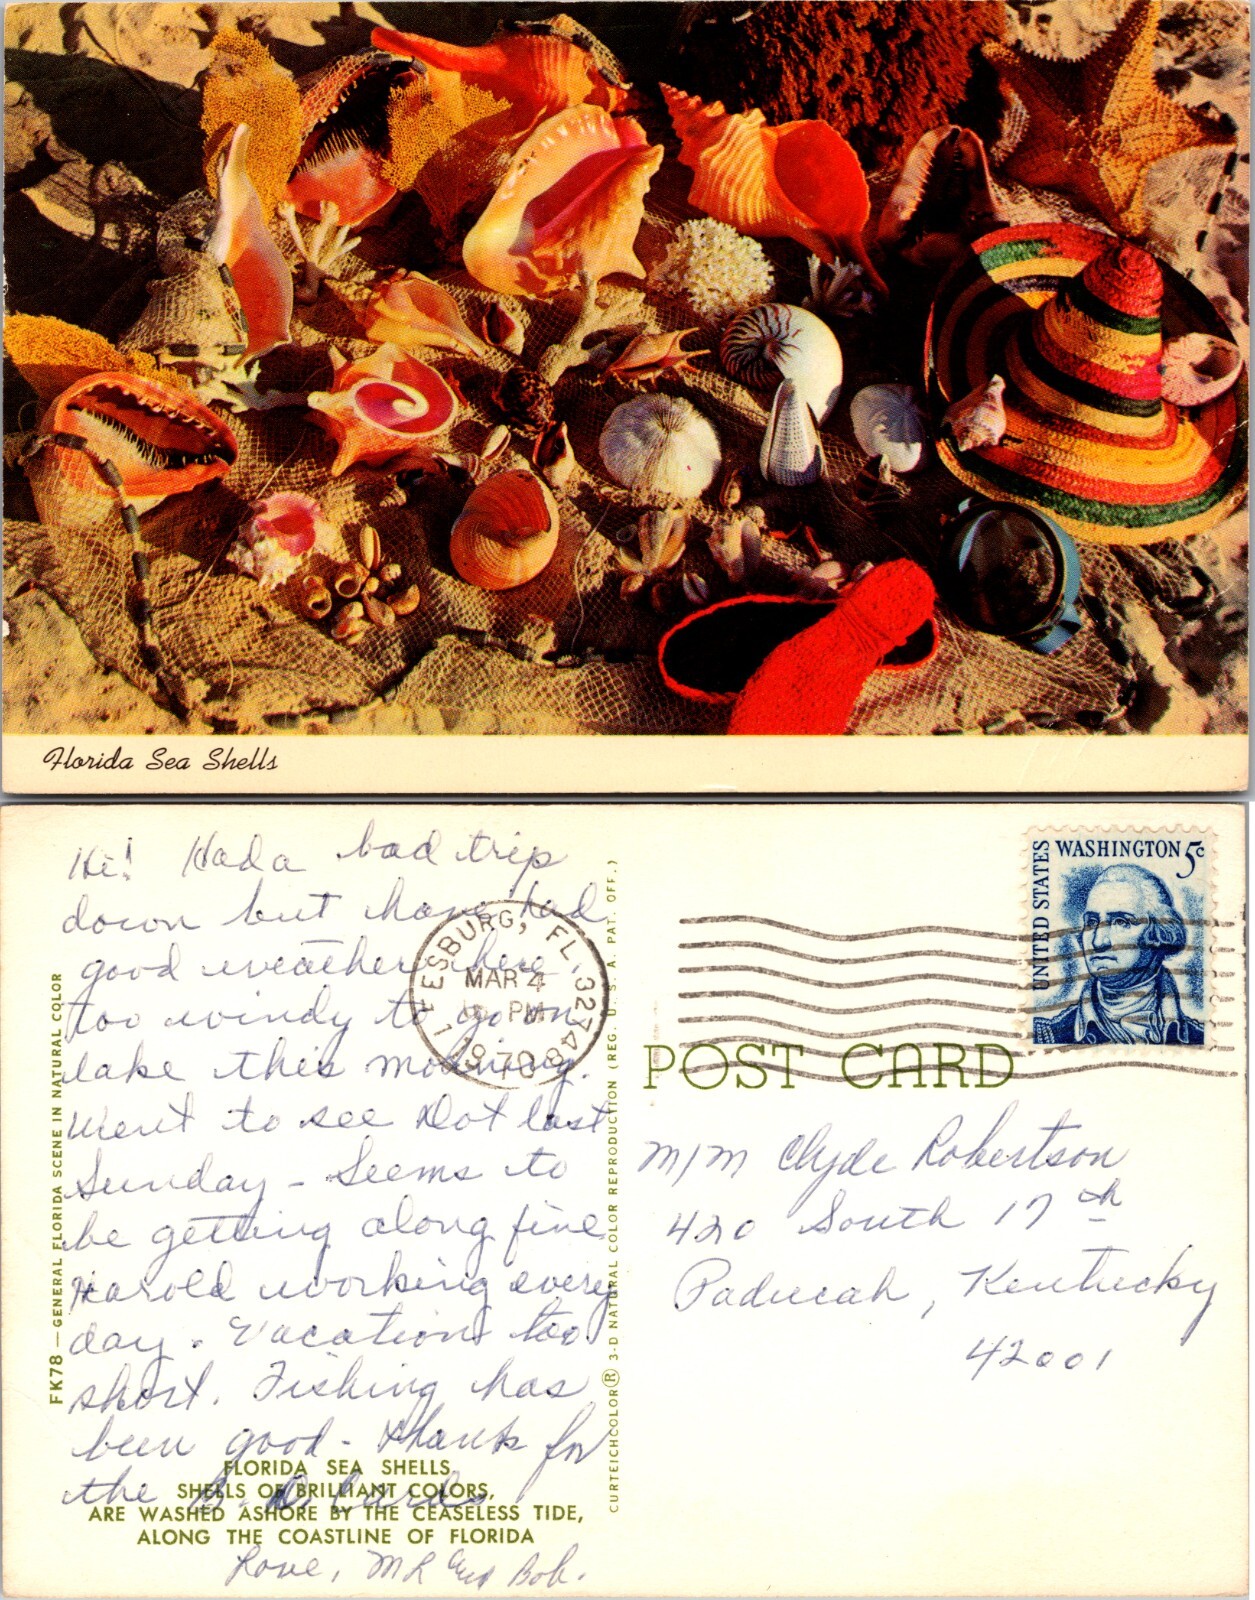 Florida Sea Shells
Hi! Had a bad trip
down but have had
good weather here,
too windy to go on
lake this morning.
Went to see Dot last
Sunday - Seems to
be getting along fine
Harold working every
day. Vacation too
short. Fishing has
been good - thanks for
the B.D. Cards
Love, ML and Bob.
FLORIDA SEA SHELLS
SHELLS OF BRILLIANT COLORS,
ARE WASHED ASHORE BY THE CEASELESS TIDE,
ALONG THE COASTLINE OF FLORIDA
FK78—GENERAL FLORIDA SCENE IN NATURAL COLOR
CURTEICHCOLOR® 3-D NATURAL COLOR REPRODUCTION (REG. U. S. A. PAT. OFF.)
LEESBURG, FL. 32748
MAR 4
PM
1970
UNITED STATES
WASHINGTON 5c
POST CARD
M/M Clyde Robertson
420 South 17th
Paducah, Kentucky
42001